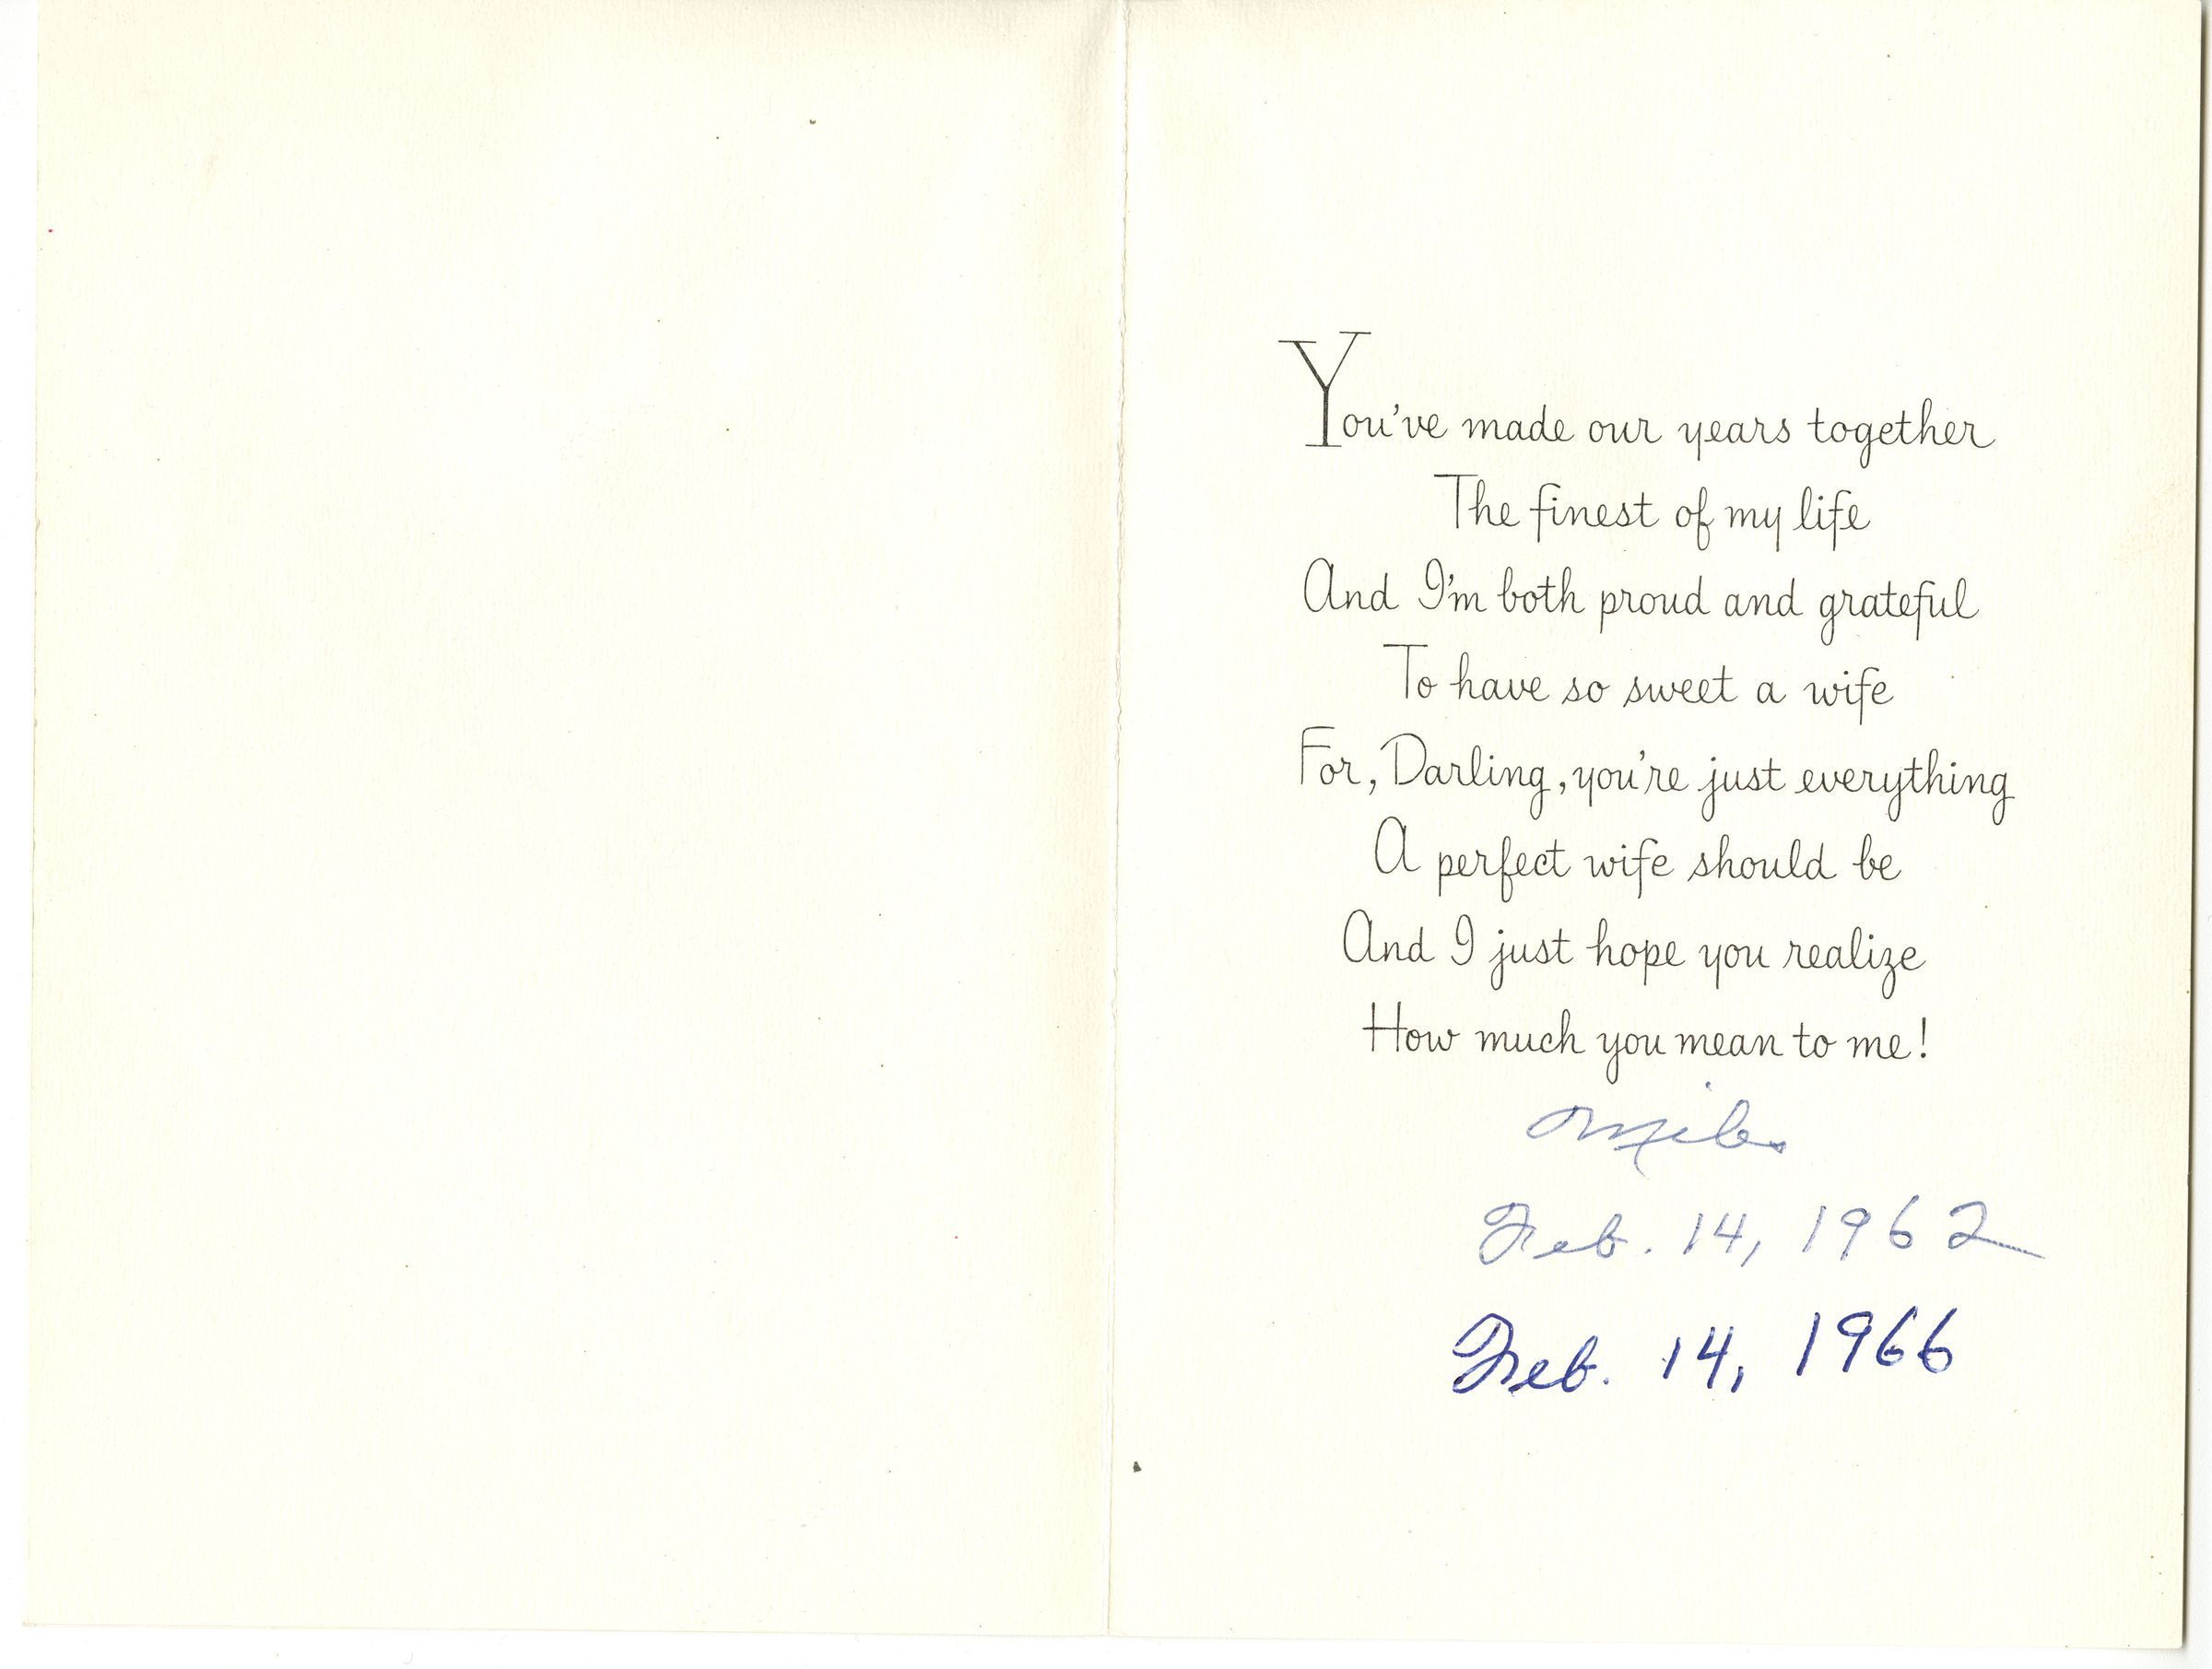 You've made our years together
The finest of my life
And I'm both proud and grateful
To have so sweet a wife
For, Darling, you're just everything
A perfect wife should be
And I just hope you realize
How much you mean to me!
Feb. 14, 1962
Feb. 14, 1966